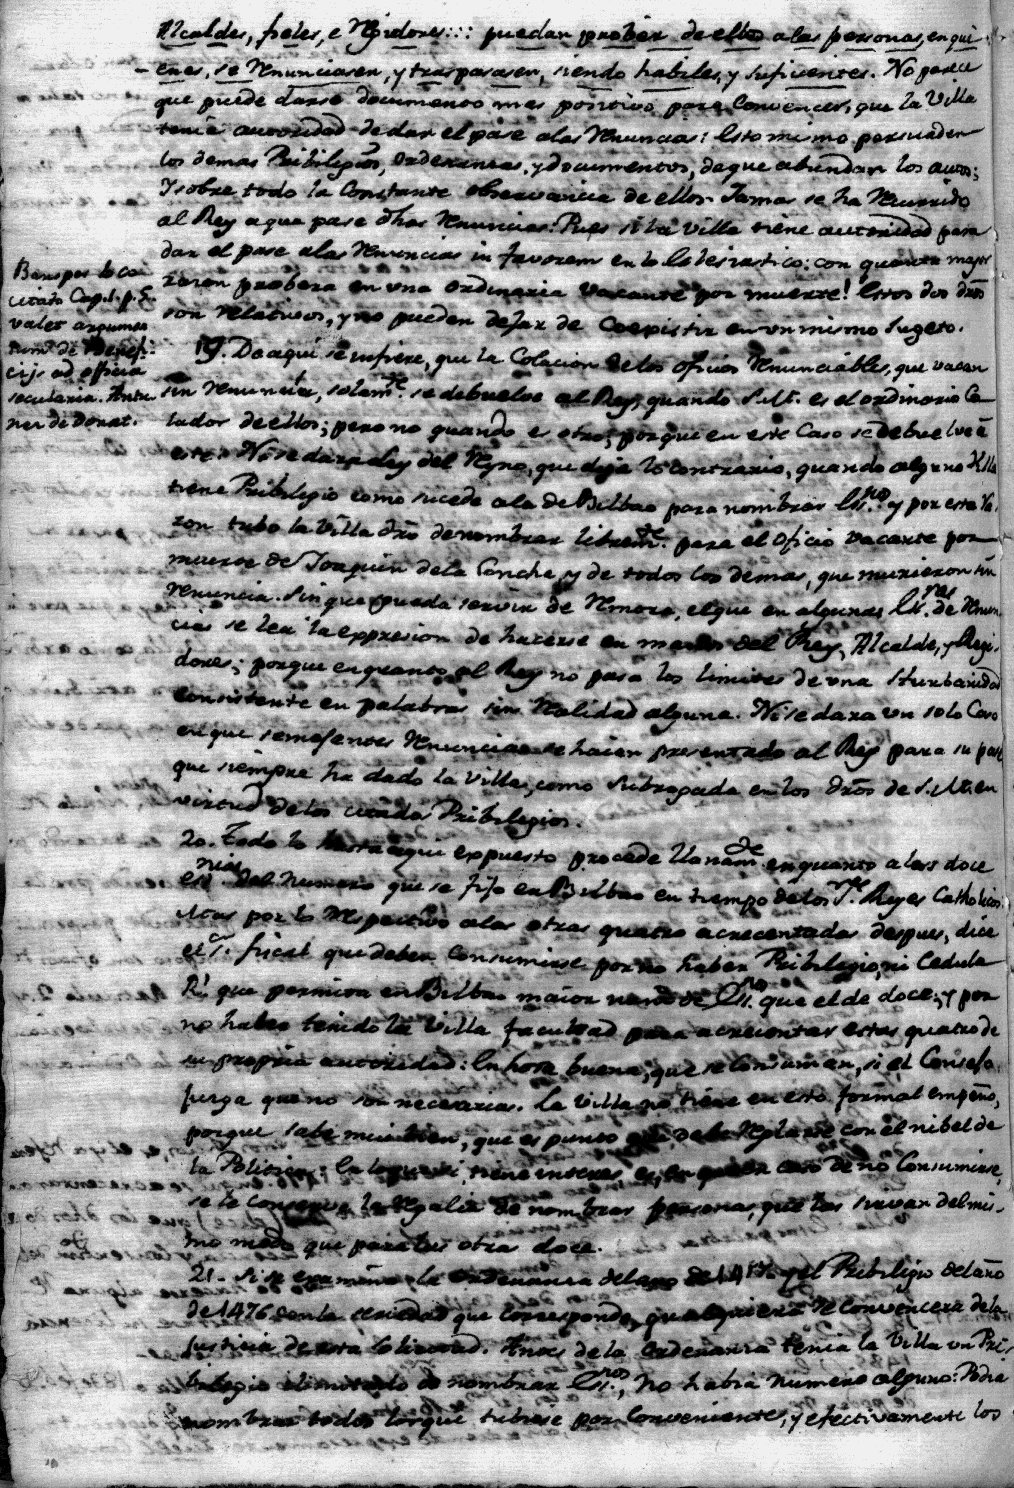 Alcaldes, fieles, e Rejidores::: puedan probeer de ellos a las personas, en qui-
enes, se renunciasen, y traspasasen, siendo habiles, y suficientes. No parece
que puede darse documento mas positivo para convencer, que la Villa
tenia autoridad de dar el pase alas renuncias: Esto mismo persuaden
los demas Pribilegios, ordenanzas, y Documentos, de que abundan los autos;
Y sobre todo la constante observancia de ellos. Jamas se ha recurrido
al Rey a que pase dhas renuncias. Pues si la Villa tiene autoridad para
dar el pase alas renuncias in favorem en lo Eclesiastico: con quanta mayor
razon probera en una ordinaria vacante por muerte! Estos dos dros
son relativos, y no pueden dejar de coexistir en un mismo sugeto.
Barbos
citato Cap. 1. p. 5.
valet argumen
tum de Benefi-
cijs ad officia
secularia.
19. De aqui se infiere, que la Colacion de los oficios renunciables, que vacan
sin renuncia, solamte. se debuelve al Rey, quando S.M. es el ordinario Co-
lador de ellos; pero no quando es otro; porque en este caso se debuelve a
este. No se dara ley del Reyno, que diga lo contrario, quando alguna Villa
tiene Pribilegio como sucede ala de Bilbao para nombrar Essnos. y por esta ra-
zon tubo la Villa dro de nombrar libremte. para el oficio vacante por
muerte de Joaquin dela Concha, y de todos los demas, que murieron sin
renuncia. Sin que pueda servir de remora, el que en algunas Essras. de renun-
cias se lea la expresion de hacerse en manos del Rey, Alcalde, y Regi-
dores; porque en quanto al Rey no pasa los limites de una
consistente en palabras sin realidad alguna. Ni se dara un solo caso
en que semejantes renuncias se hacen presentado al Rey para su pase
que siempre ha dado la Villa, como subrogada en los dros de S.M. en
virtud de los citados Pribilegios.
20. Todo lo hasta aqui expuesto procede llanamte. en quanto a las doce
essnias. del numero que se fijo en Bilbao en tiempo de los Sres. Reyes Catholicos
Mas por lo respectivo alas otras quatro acrecentadas despues, dice
el Sr. fiscal que deben consumirse por no haber Pribilegio, ni Cedula
Rl. que permita en Bilbao maior numo de Essnos. que el de doce; y por
no haber tenido la Villa facultad para acrecentar estas quatro de
su propria autoridad: Enhora buena, que se consuman, si el Consejo
juzga que no son necesarias. La Villa no tiene en esto formal empeño,
porque sabe mui bien, que es punto que debe reglarse con el nibel de
la Politica: En lo que si, tiene interes, es, en que en caso de no consumirse,
se le conserve la regalia de nombrar personas, que las sirvan del mis-
mo modo que para las otras doce.
21. Si se examina la ordenanza del año de y el Pribilegio del año
de 1476 con la seriedad que corresponde, qualquiera se convencera de la
justicia de esta solicitud. Antes de la ordenanza tenia la Villa un Pri-
bilegio ilimitado de nombrar Essnos, no habia numero alguno: Podia
nombrar todos los que tubiese por conveniente, y efectivamente los